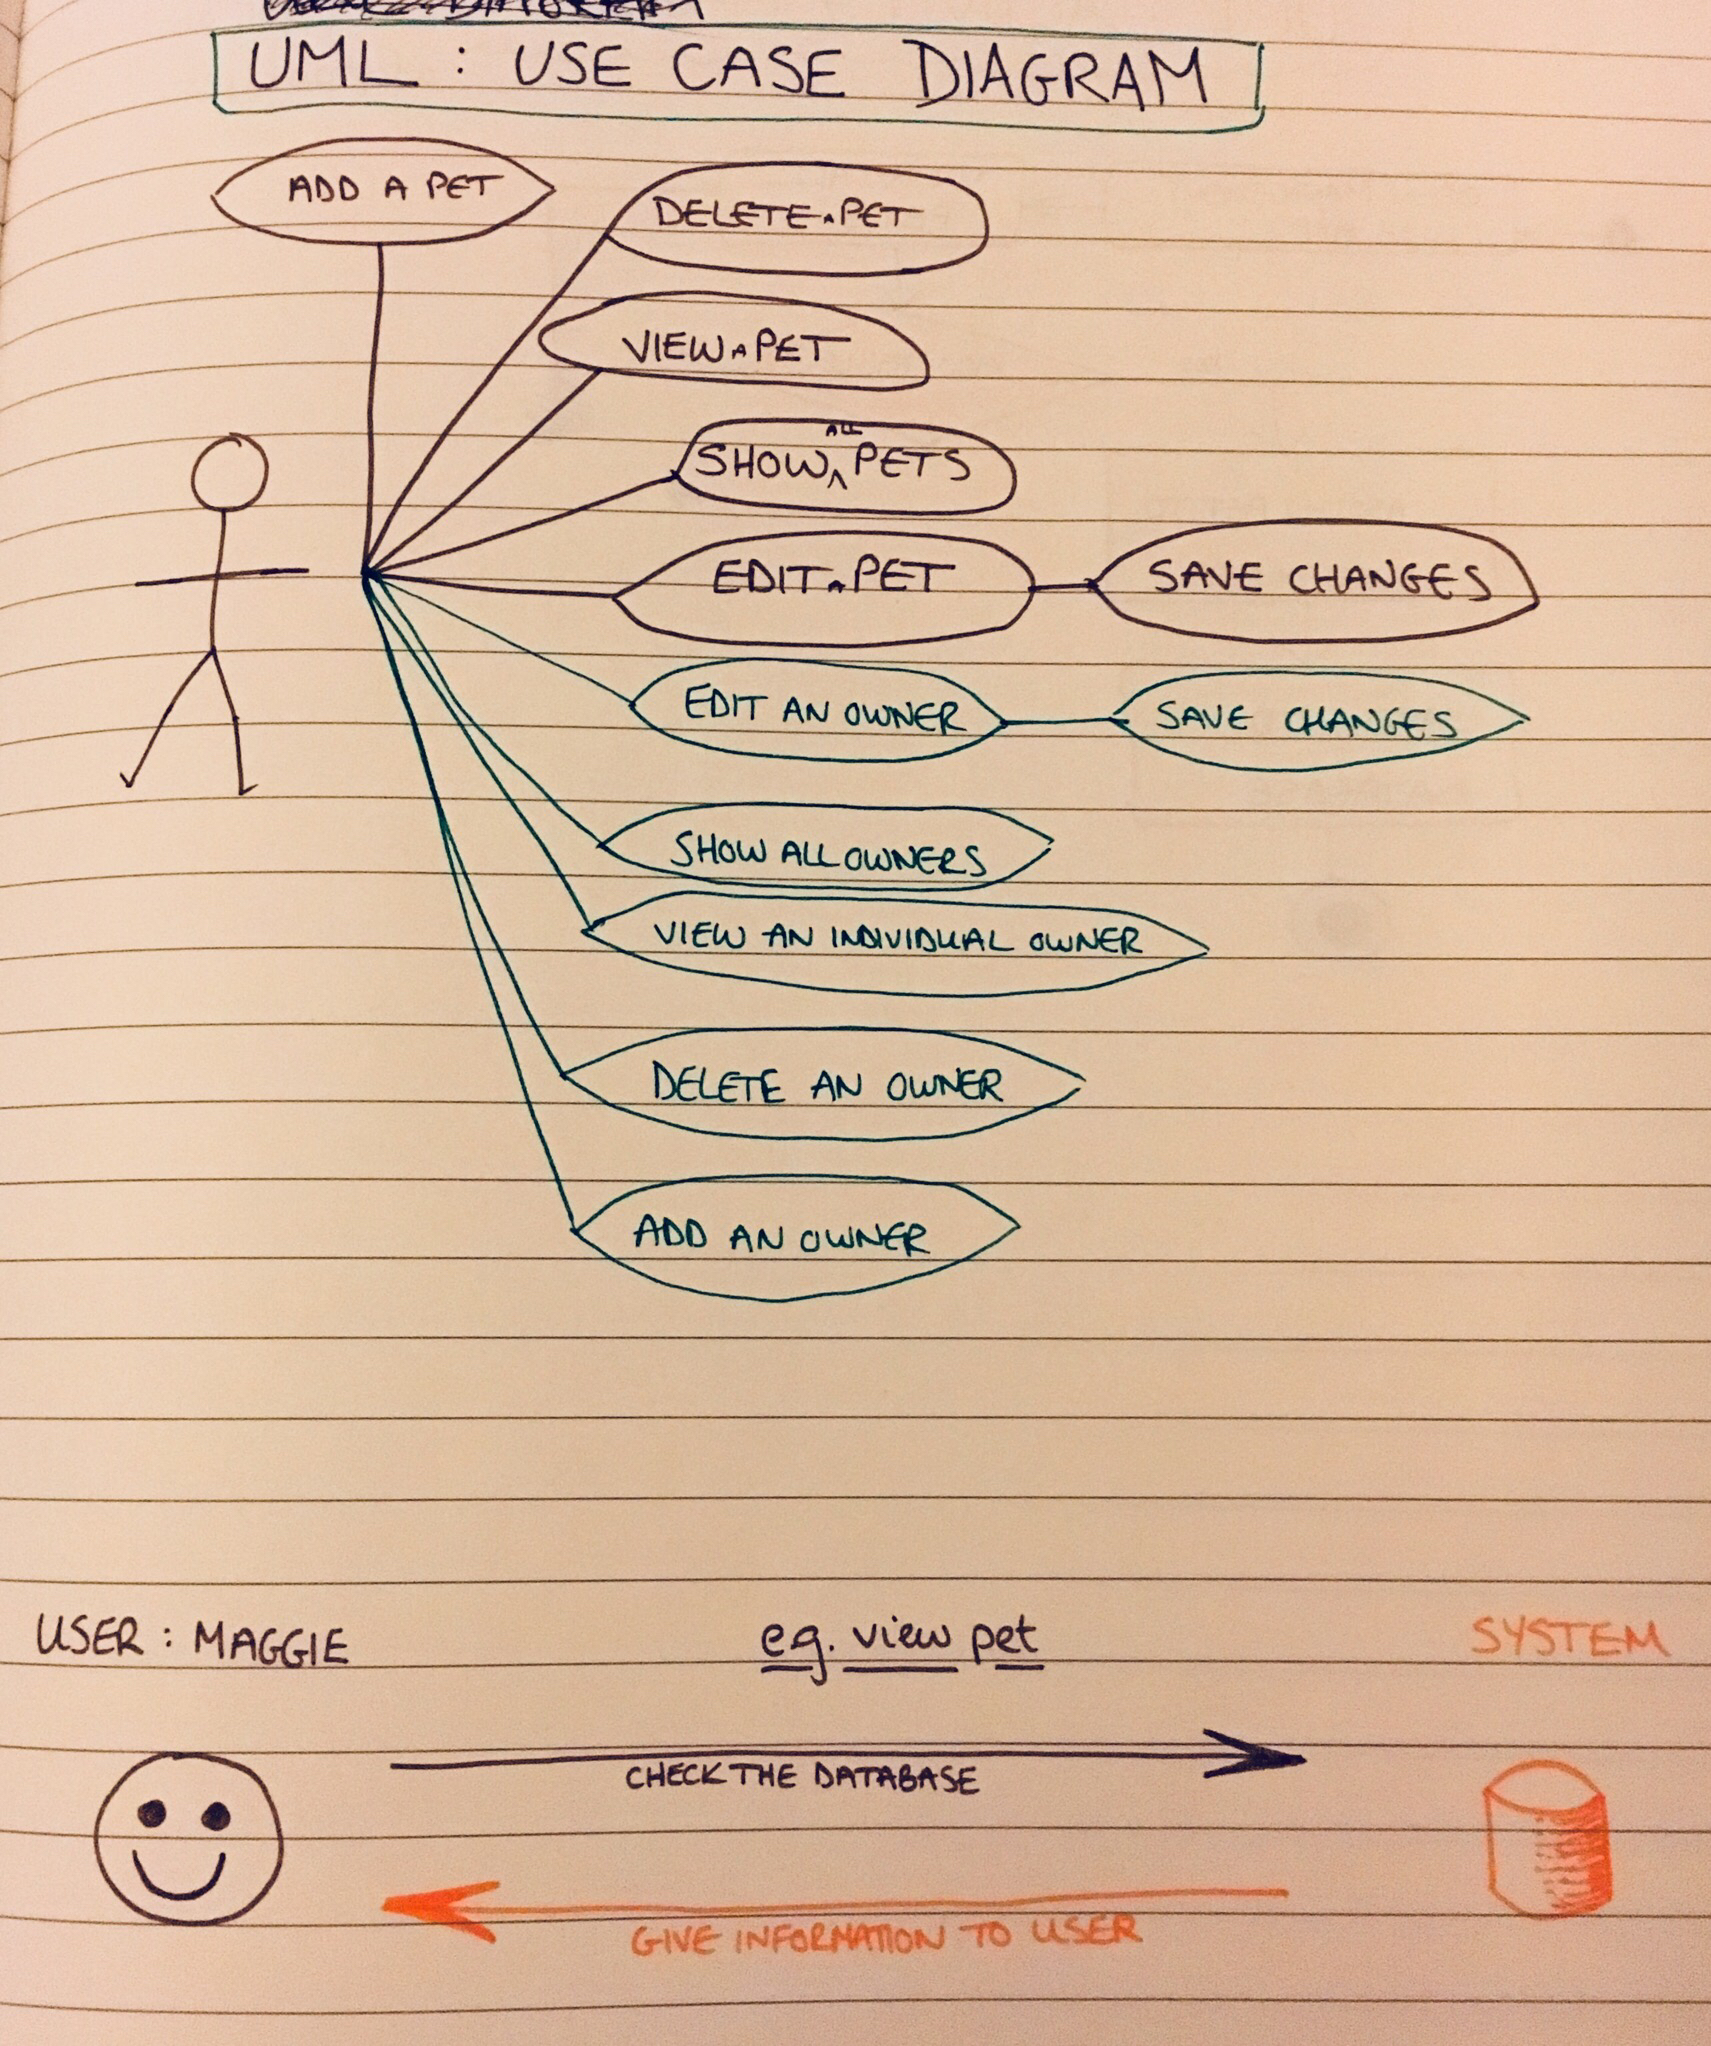 UML : USE CASE DIAGRAM
ADD A PET
DELETE A PET
VIEW A PET
ALL
SHOW PETS
EDIT A PET
SAVE CHANGES
EDIT AN OWNER
SAVE CHANGES
SHOW ALL OWNERS
VIEW AN INDIVIDUAL OWNER
DELETE AN OWNER
ADD AN OWNER
USER : MAGGIE
eg. view pet
SYSTEM
CHECK THE DATABASE
GIVE INFORMATION TO USER